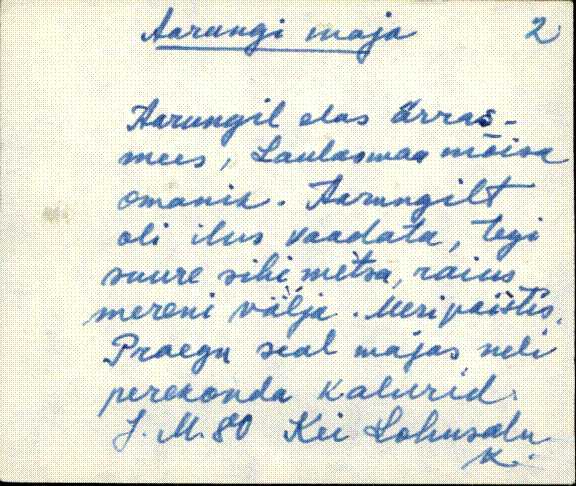 Aarungi maja 2
Aarungil elas ärras-
mees, Laulasmaa mõisa
omanik. Aarungilt
oli ilus vaadata, tegi
suure sihi metsa, raius
mereni välja. Meri paistis.
Praegu seal majas neli
perekonda kalurid.
J. M. 80 Kei Lohusalu
k.